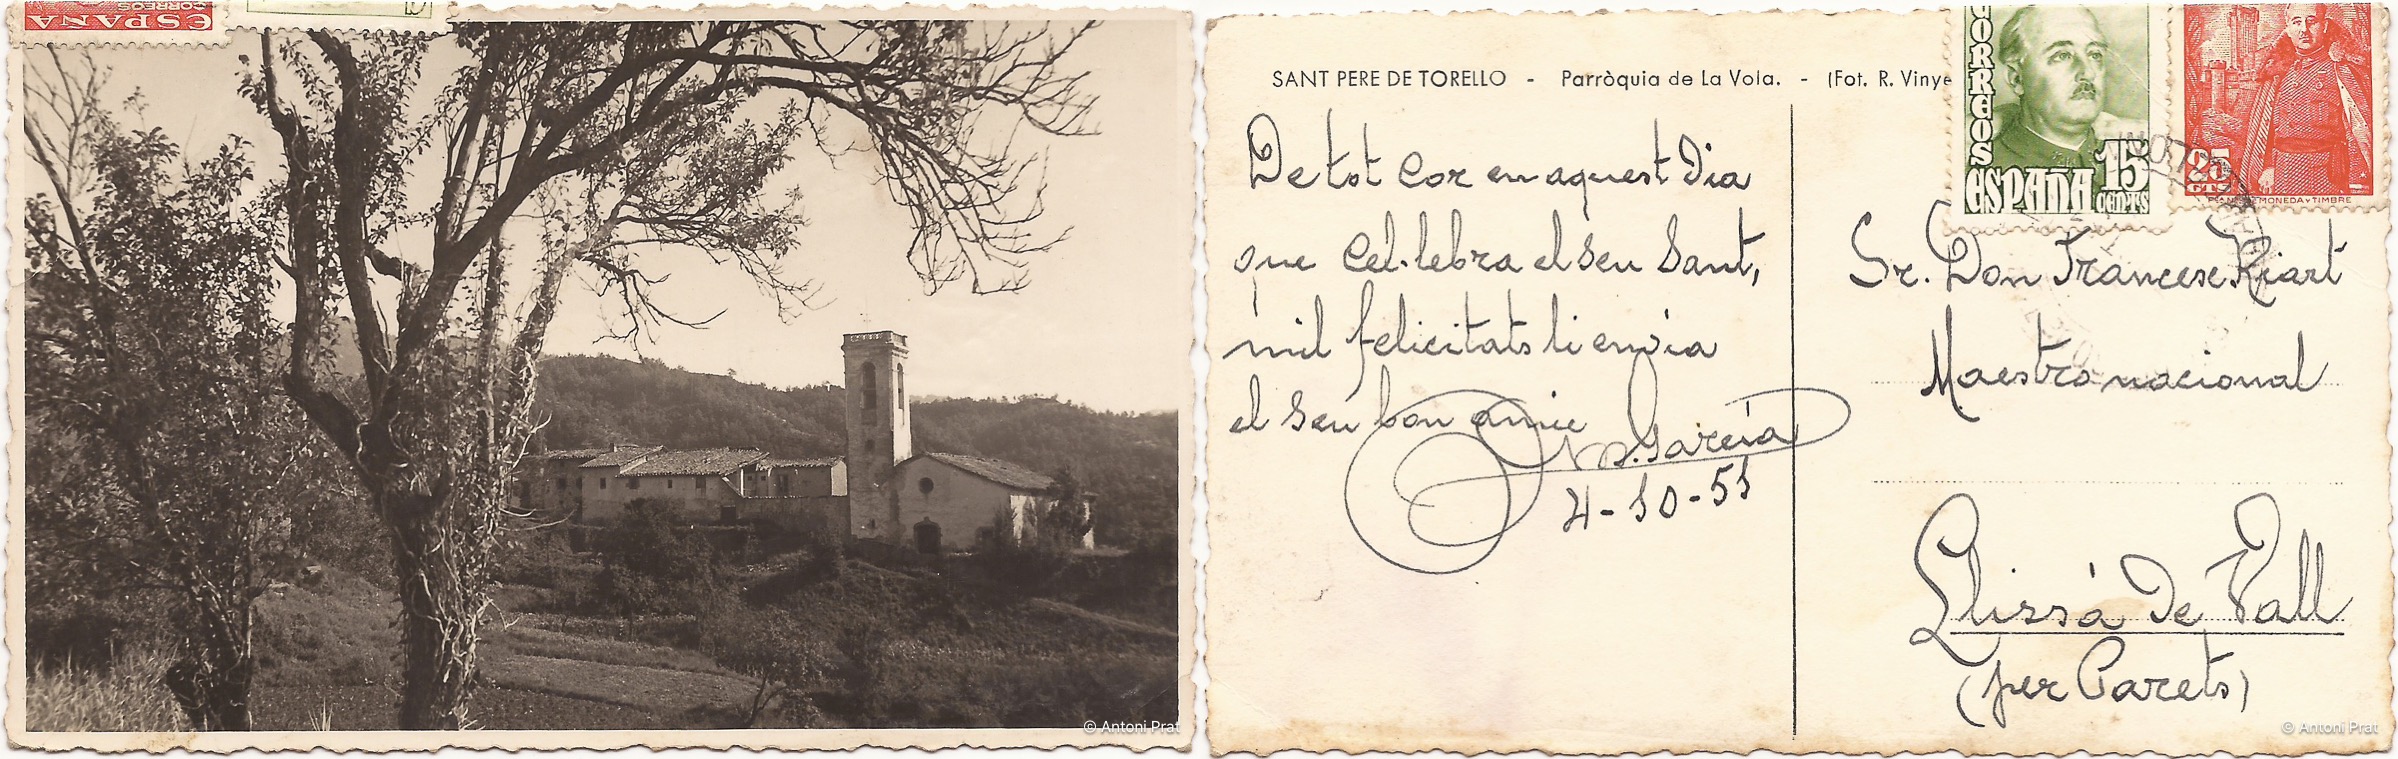 ESPAÑA
CORREOS
© Antoni Prat
SANT PERE DE TORELLO - Parròquia de La Vola. - (Fot. R. Vinye
De tot cor en aquest dia
que cel·lebra el seu Sant,
mil felicitats li envia
el seu bon amic
Garcia
4-10-51
CORREOS
ESPAÑA
15
CENTS
25
CTS
Sr. Don Francesc Riart
Maestro nacional
Llissá de Vall
(per Parets)
© Antoni Prat